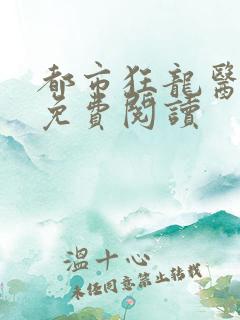 都市狂龍醫
免費閱讀
溫十心
未經同意禁止轉載